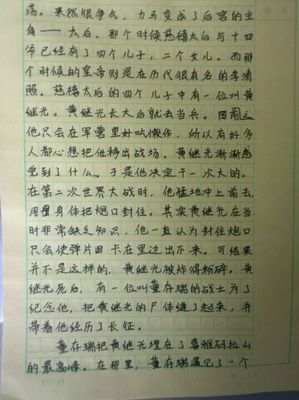 荡。果然很争气，力马变成了后宫的主
角——太后。那个时候慈禧太后与十四
爷已经有了四个儿子，二个女儿。而那
个时候的皇帝则是在历代很有名的李清
照。慈禧太后的四个儿子中有一位叫黄
继光。黄继光长大后就去当兵。因
他只会在军营里好吃懒作，所以有好多
人都心想把他移出战场。黄继光渐渐感
觉到了什么。于是他决定干一次大的。
在第二次世界大战时，他猛地冲上前去，
用 身体把炮口封住。其实黄继光在当
时非常缺乏知识，他一直认为封住炮口
只会使弹片 卡在里边出不来。可结果
并不是这样的，黄继光被炸得粉碎。黄
继光死后，有一位叫董存瑞的战士为了
纪念他，把黄继光的尸体缝了起来，并
带着他经历了长征。
董存瑞把黄继光埋在了喜雅丽拉山
的最高峰。在那里，董存瑞遇见了一个